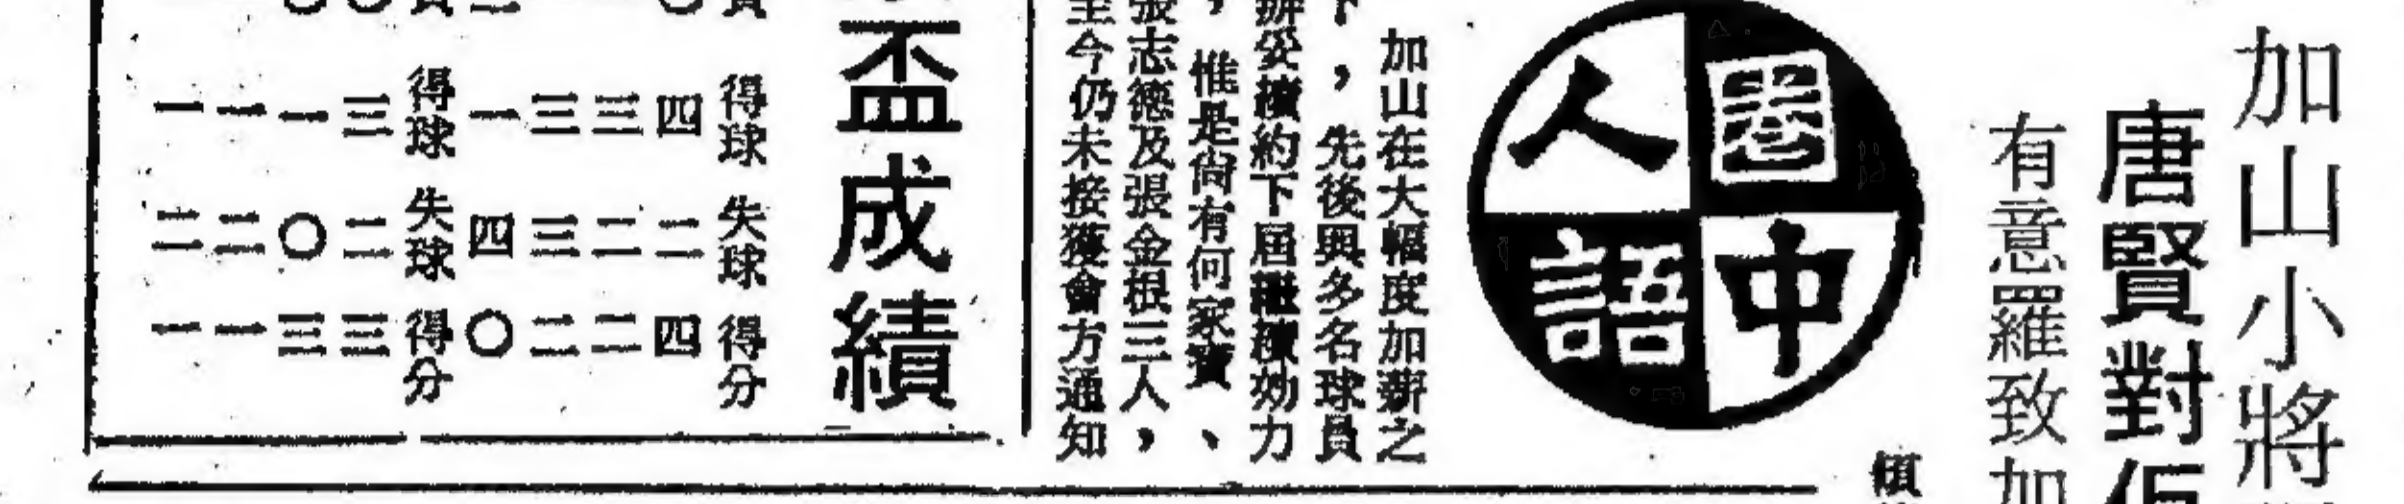 加山小將
唐賢對
有意羅致加
圈中人語
加山在大幅度加薪之
下，先後與多名球員
辦妥續約下屆繼續効力
，惟是尙有何家寶、
張志德及張金根三人，
至今仍未接獲會方通知
盃成績
得球 失球 得分
四 二 四
三 二 二
三 三 二
一 四 〇
得球 失球 得分
三 二 三
一 〇 三
一 二 一
一 二 一